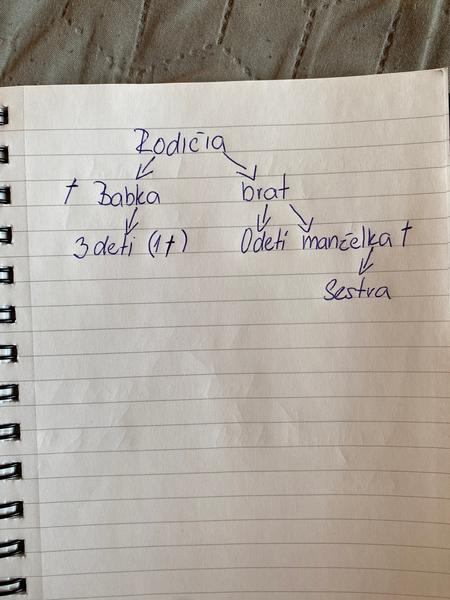 Rodičia
† Babka brat
3 deti (1†) 0 detí manželka †
Sestra